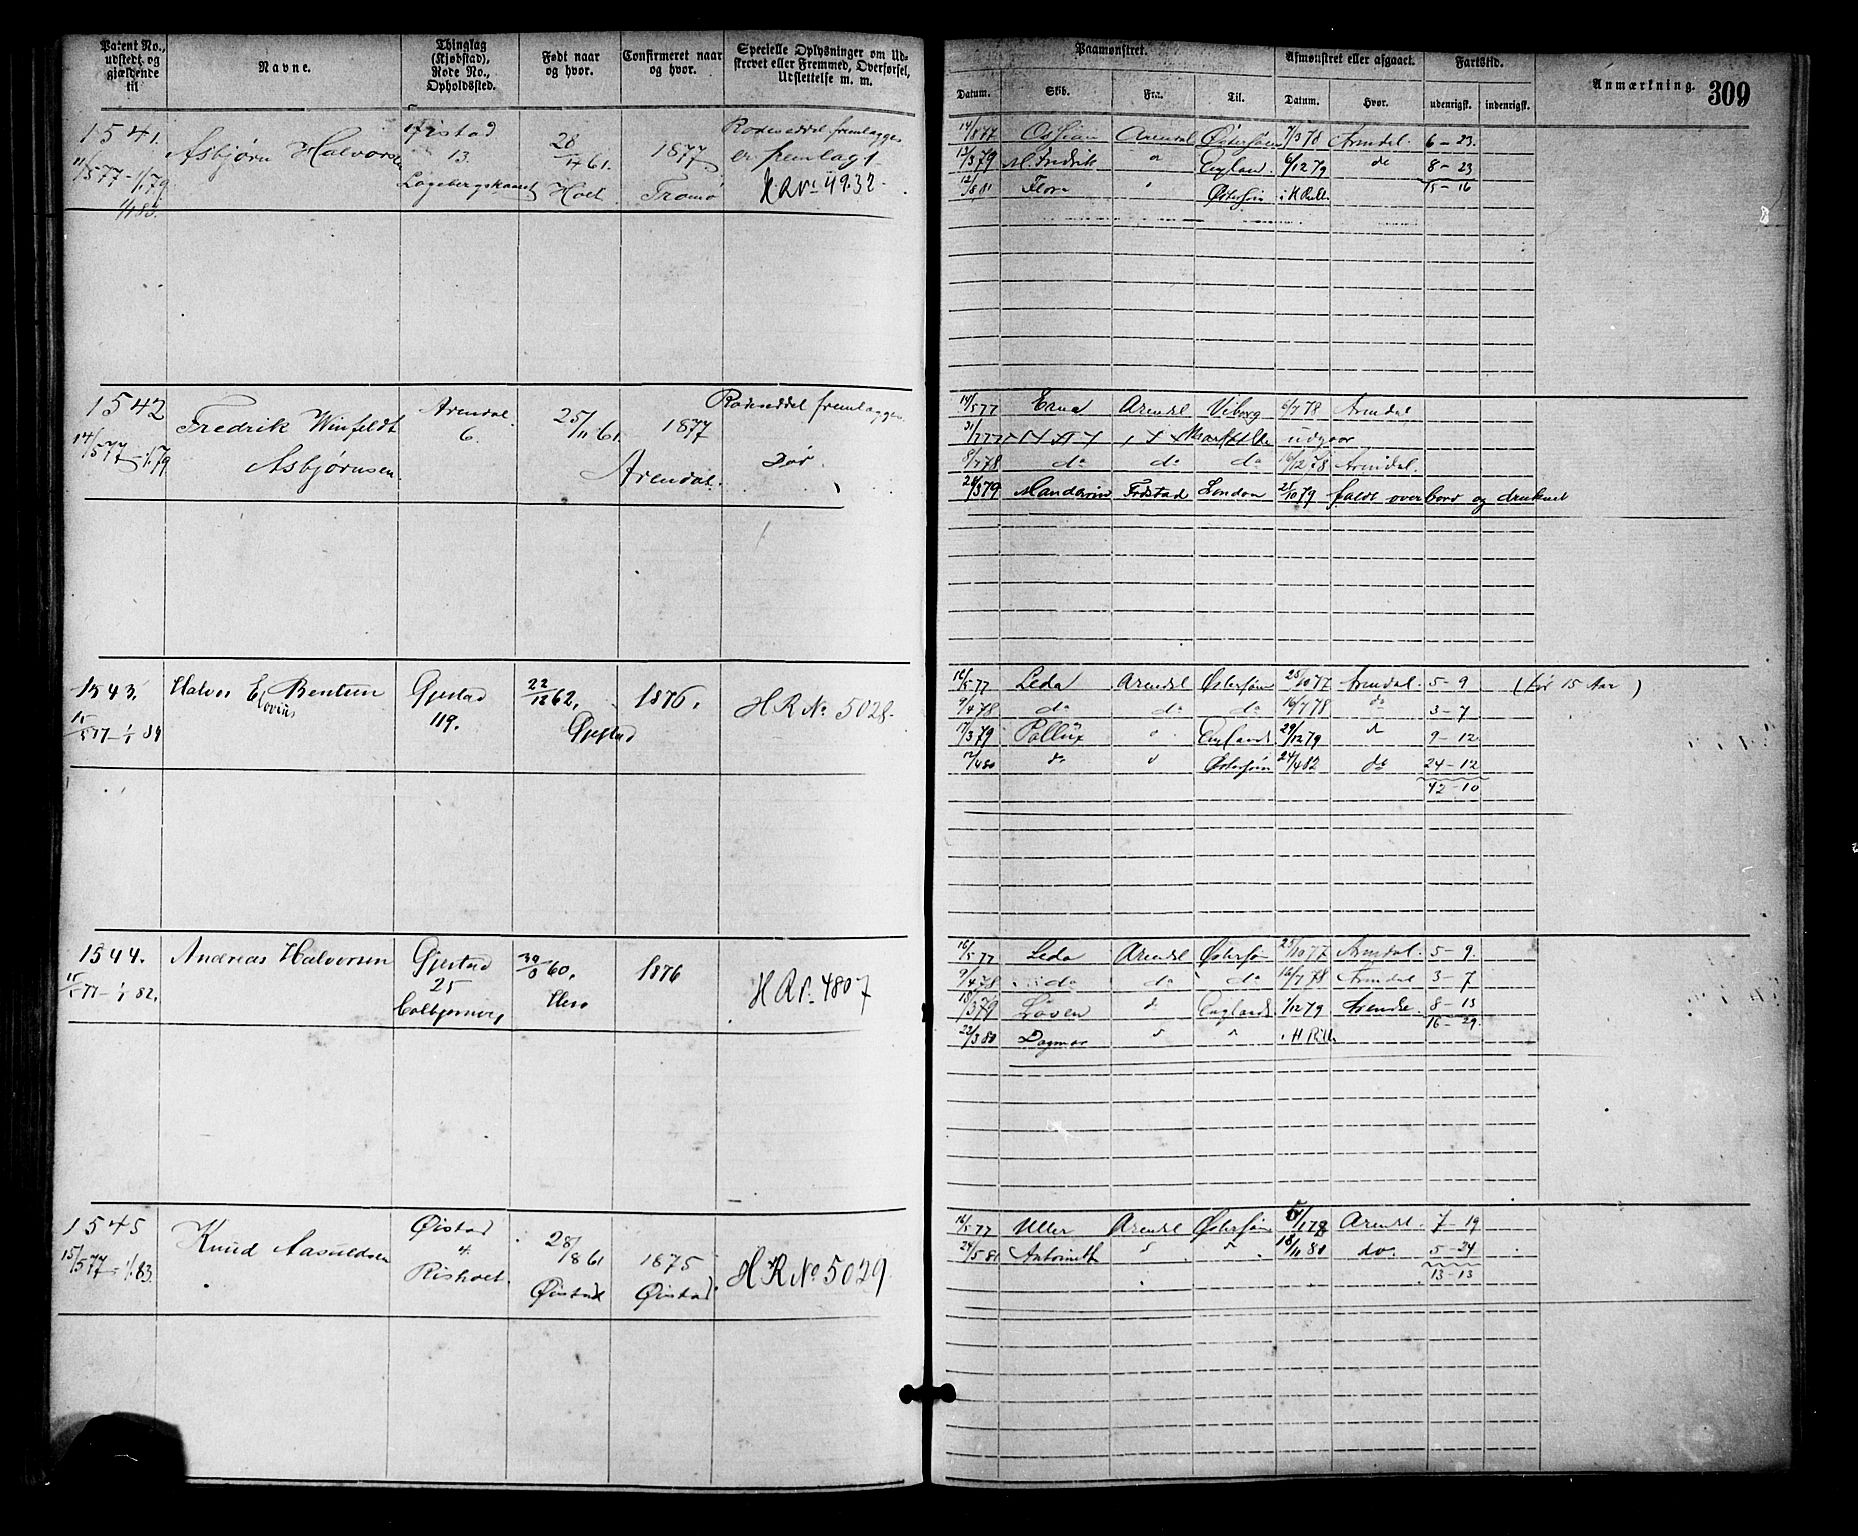 Patent No., udstedt og gjældende til
Navne.
Thinglag (Kjøbstad), Rode No., Opholdssted.
Født naar og hvor.
Confirmeret naar og hvor.
Specielle Oplysninger om Udskrevet eller Fremmed, Overførsel, Udslettelse m. m.
Paamønstret.
Datum.
Skib.
Fra.
Til.
Afmønstret eller afgaaet.
Datum.
Hvor.
Fartstid.
udenrigsk.
indenrigsk.
Anmærkning.
309
1541.
11/5 77 - 1/1 79
Asbjørn Halvorsen
Øistad
13.
28/
61.
Holt
1877
Tromø
Rodeseddel fremlægges
er fremlagt
H R No 4932.
14/8 77 Ossian Arendal Østersøen 7/3 78 Arendal. 6 - 23.
12/3 79 M. Fredrik " England. 6/12 79 do 8 - 23
12/8 81 Flora " Østersøen i H Rull. 15 - 16
1542
14/5 77 - 1/1 79
Fredrik Winfeldt
Asbjørnsen
Arendal.
6.
25/11 61
1877
Arendal.
Rodeseddel fremlægges
Død.
14/5 77 Erna Arendl Viborg 6/7 78 Arendal
31/7 77 udgaar
8/7 78 do do do 16/12 78 Arendal.
28/3 79 Mandarin Frdstad London 25/10 79 faldt overbord og druknet
1543.
15/5 77 - 1/1 84
Halvor Elovius Bentsen
Gjestad
119.
22/12 62.
Gjestad
1876.
H R No 5028.
16/5 77 Leda Arendl Østersøen 25/10 77 Arendal. 5 - 9 (før 15 Aar)
9/4 78 do do do 16/7 78 do 3 - 7
17/3 79 Pollux " England 29/12 79 do 9 - 12
12/4 80 do " Østersøen 24/4 82 do 24 - 12
42 - 10
1544.
15/5 77 - 1/1 82.
Andreas Halvorsen
Gjestad
25
30/8 60.
1876
H R No 4807
16/5 77 Leda Arendl Østersøn 25/10 77 Arendal. 5 - 9.
9/4 78 do do do 16/7 78 Arendal 3 - 7
18/3 79 Løven do England 1/12 79 Arendl. 8 - 13
16 - 29.
22/3 80 Dagmar " " i H Rull.
1545
15/5 77 - 1/1 83.
Knud Aasuldsen
Øistad
4.
Risholt.
28/8 61
Øistad
1875
Øistad.
H R No 5029
16/5 77 Uller Arendl Østersøn 5/1 78 Arendl. 7 - 19
24/5 81 Antoinett " " 18/11 81 do. 5 - 24
13 - 13